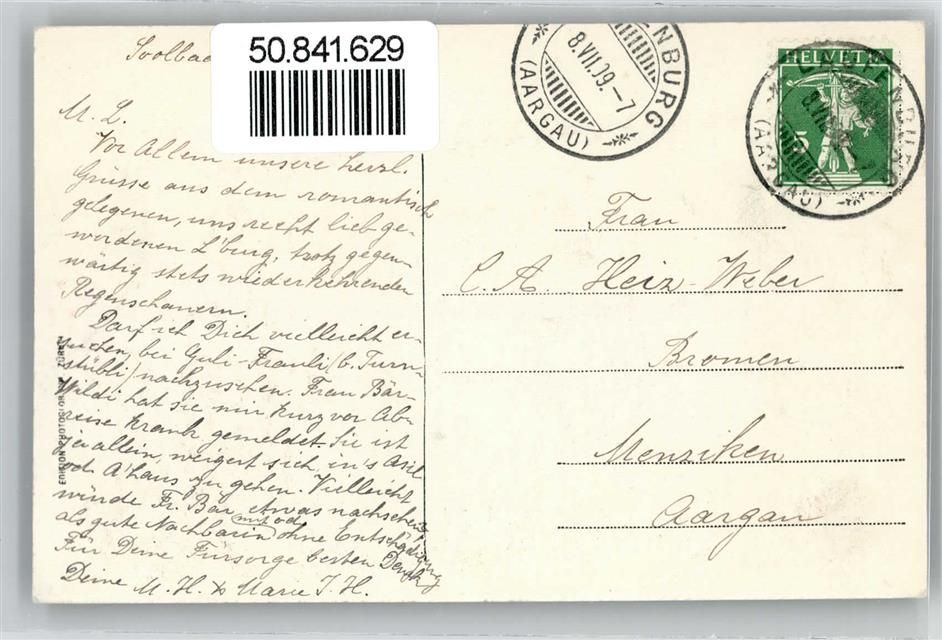 Soolbad
50.841.629
M. L.
Vor Allem unsere herzl.
Grüsse aus dem romantisch
gelegenen, uns recht lieb ge-
wordenen L'burg, trotz gegen-
wärtig stets wiederkehrenden
Regenschauern.
Darf ich Dich vielleicht er-
suchen, bei Guli-Frauli (b. Turn-
stübli) nachzusehen. Frau Bär-
Wildi hat sie mir kurz vor Ab-
reise krank gemeldet. Sie ist
ja allein, weigert sich, in's Asil
od. A'haus zu gehen. Vielleicht
würde Fr. Bär etwas nachsehen,
als gute Nachbarin mit od. ohne Entschädigung
Für Deine Fürsorge besten Dank
Deine M. H. & Marie J. H.
EDITION PHOTOGLOB ZÜRICH
ENBURG
8.VII.39.-7
(AARGAU)
HELVETIA
5
LAUFENBURG
(AARGAU)
Frau
C. A. Heiz-Weber
Bromen
Menziken
Aargau